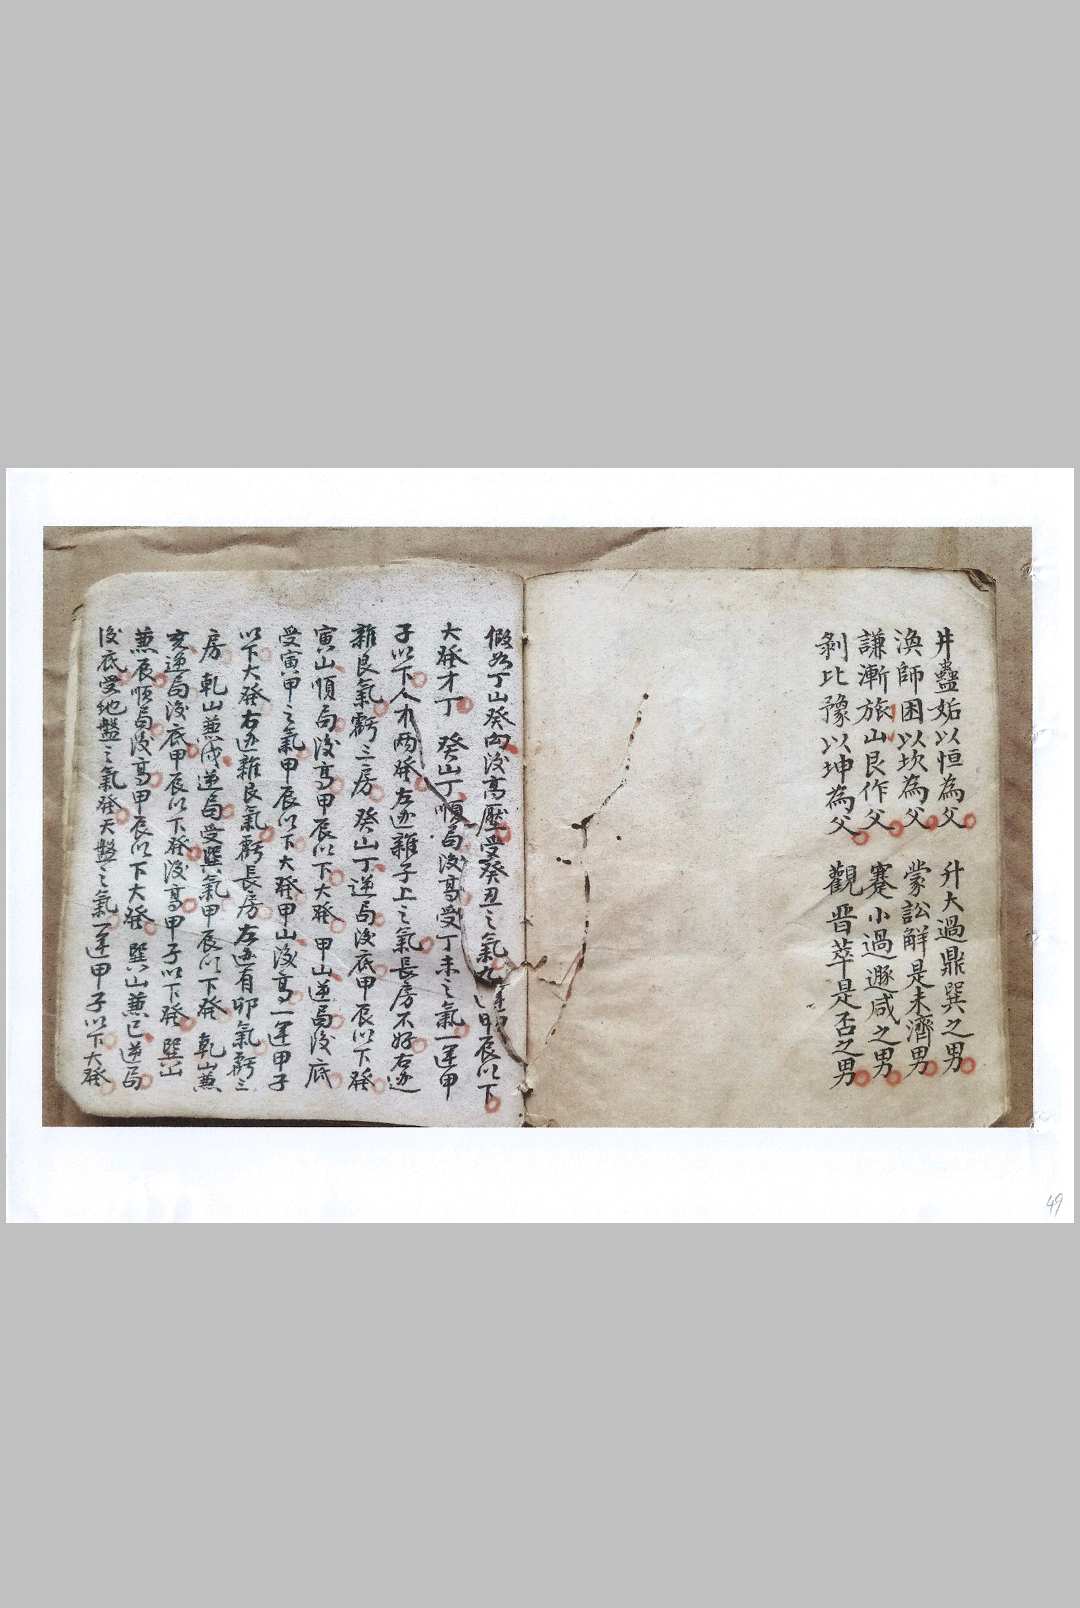 井蠱姤以恒為父 升大過鼎巽之男
渙師困以坎為父 蒙訟解是未濟男
謙漸旅山艮作父 蹇小過遯咸之男
剝比豫以坤為父 觀晋萃是否之男
假如丁山癸向後高壓受癸丑之氣九運甲辰以下
大發才丁 癸山丁順局後高受丁未之氣一運甲
子以下人才两發左邊雜子上之氣長房不好右边
雜艮氣虧三房 癸山丁逆局後底甲辰以下發
寅山順局後高甲辰以下大發 甲山逆局後底
受寅甲之氣甲辰以下大發甲山後高一運甲子
以下大發右边雜艮氣虧長房左边有卯氣虧三
房 乾山兼戌逆局受巽氣甲辰以下發 乾山兼
亥逆局後底甲辰以下發後高甲子以下發 巽山
兼辰順局後高甲辰以下大發 巽山兼巳逆局
後底受地盤之氣發天盤之氣一運甲子以下大發
49